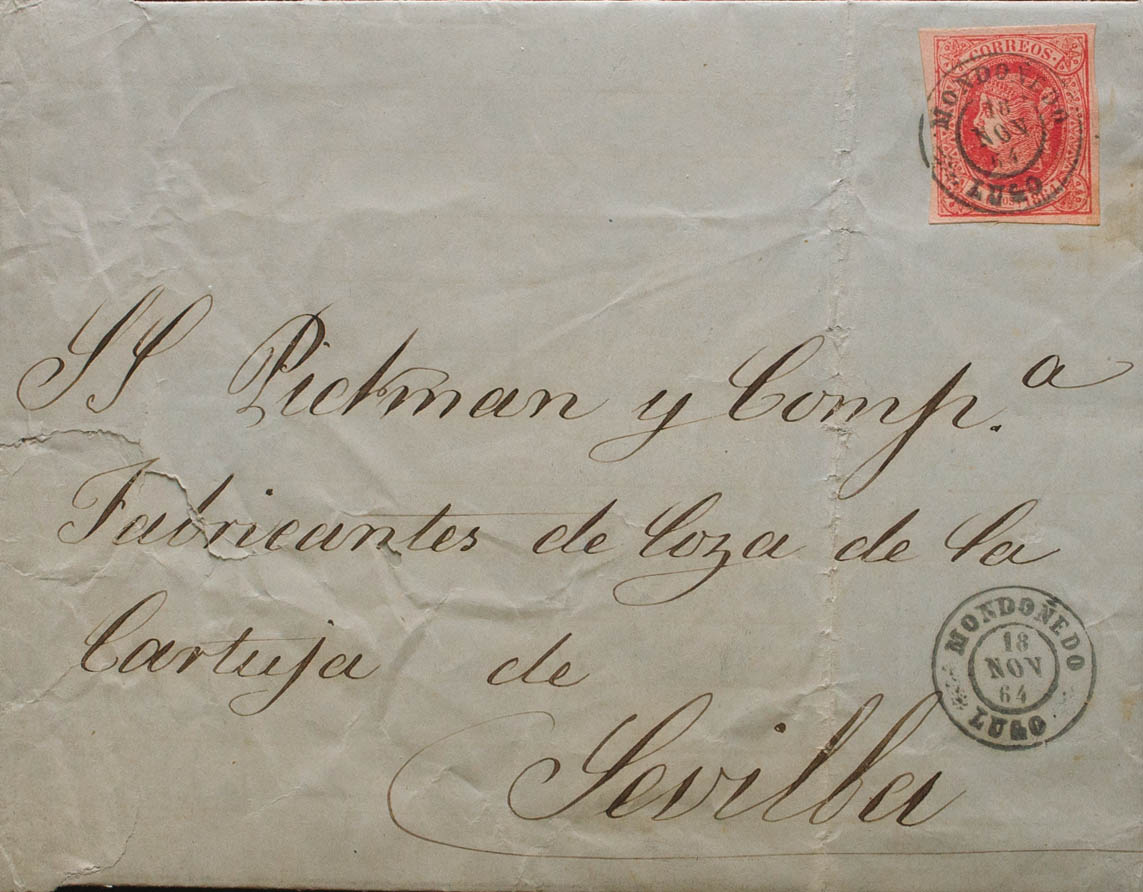 CORREOS
MONDOÑEDO
18
NOV
64
LUGO
1864
SS Pickman y Comp.ª
Fabricantes de Loza de la
Cartuja de
Sevilla
MONDOÑEDO
18
NOV
64
LUGO